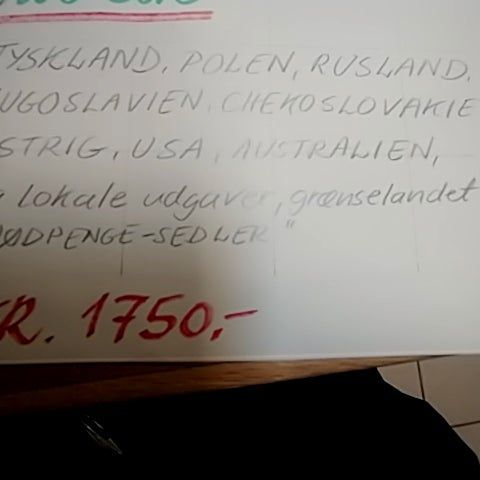 TYSKLAND, POLEN, RUSLAND,
UGOSLAVIEN, CHEKOSLOVAKIE
STRIG, USA, AUSTRALIEN,
lokale udgaver, grænselandet
ØDPENGE-SEDLER"
R. 1750,-